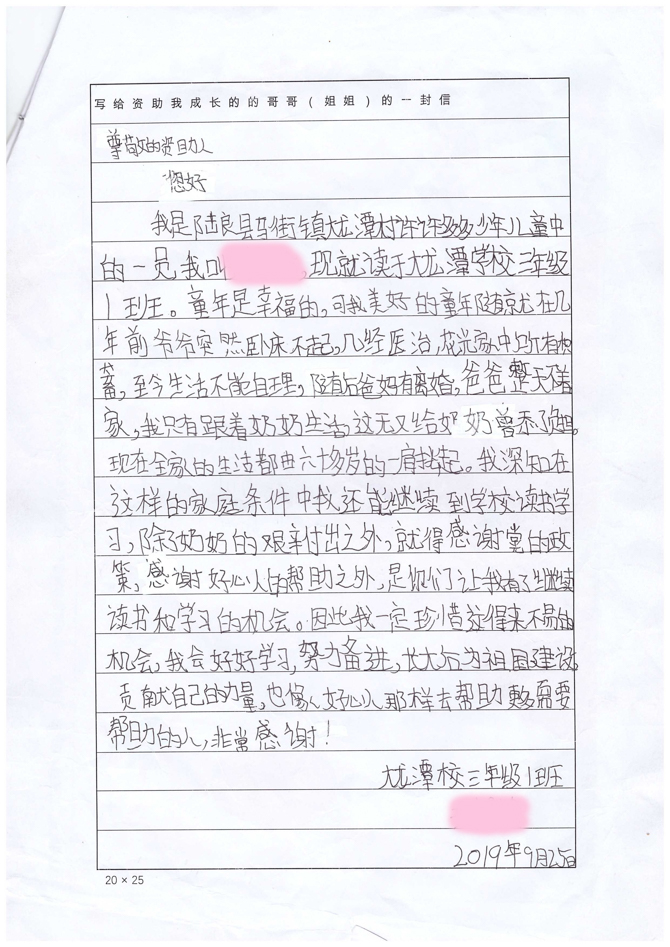 写给资助我成长的的哥哥(姐姐)的一封信
尊敬的资助人
您好
我是陆良县马街镇尨潭村许许多多少年儿童中
的一员我叫,现就读于尨潭学校三年级
1班。童年是幸福的,可我美好的童年随京尤在几
年前爷爷突然卧床不起,几经医治,花光家中所有积
蓄,至今生活不能自理,随后爸妈有离婚,爸爸整天不着
家,我只有跟着奶奶生活,这无又给奶奶曾添了
现在全家的生活都由六十多岁的一肩挑起。我深知在
这样的家庭条件中我还能继续到学校读书学
习,除了奶奶的艰辛付出之外,就得感谢党的政
策,感谢好心人的帮助之外,是你们让我有了继续
读书和学习的机会。因此我一定珍惜这得来不易的
机会,我会好好学习,努力备进,长大后为祖国建设
贡献自己的力量,也像好心人那样去帮助更多需要
帮助的人,非常感谢!
尨潭校三年级1班
2019年9月25日
20×25